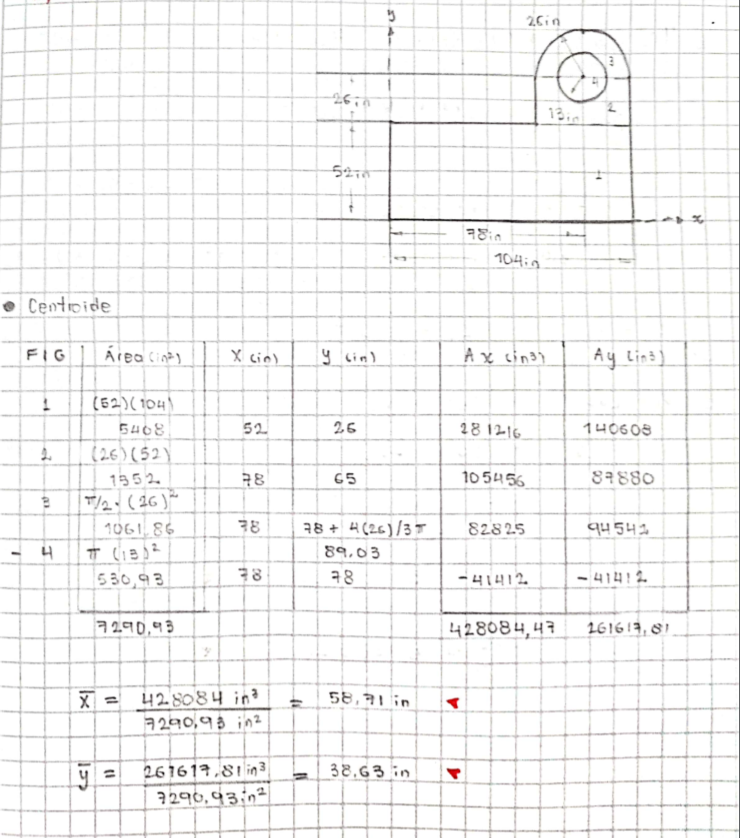 y
26in
3
4
26in
13in
2
52in
1
x
78in
104in
• Centroide
FIG Área (in²) X (in) y (in) Ax (in³) Ay (in³)
1 (52)(104)
5408 52 26 281216 140608
2 (26)(52)
1352 78 65 105456 87880
3 π/2 · (26)²
1061,86 78 78 + 4(26)/3π 82825 94542
- 4 π (13)² 89,03
530,93 78 78 -41412 -41412
7290,93 428084,47 261617,81
X̄ = 428084 in³ / 7290,93 in² = 58,71 in
ȳ = 261617,81in³ / 7290,93in² = 38,63 in